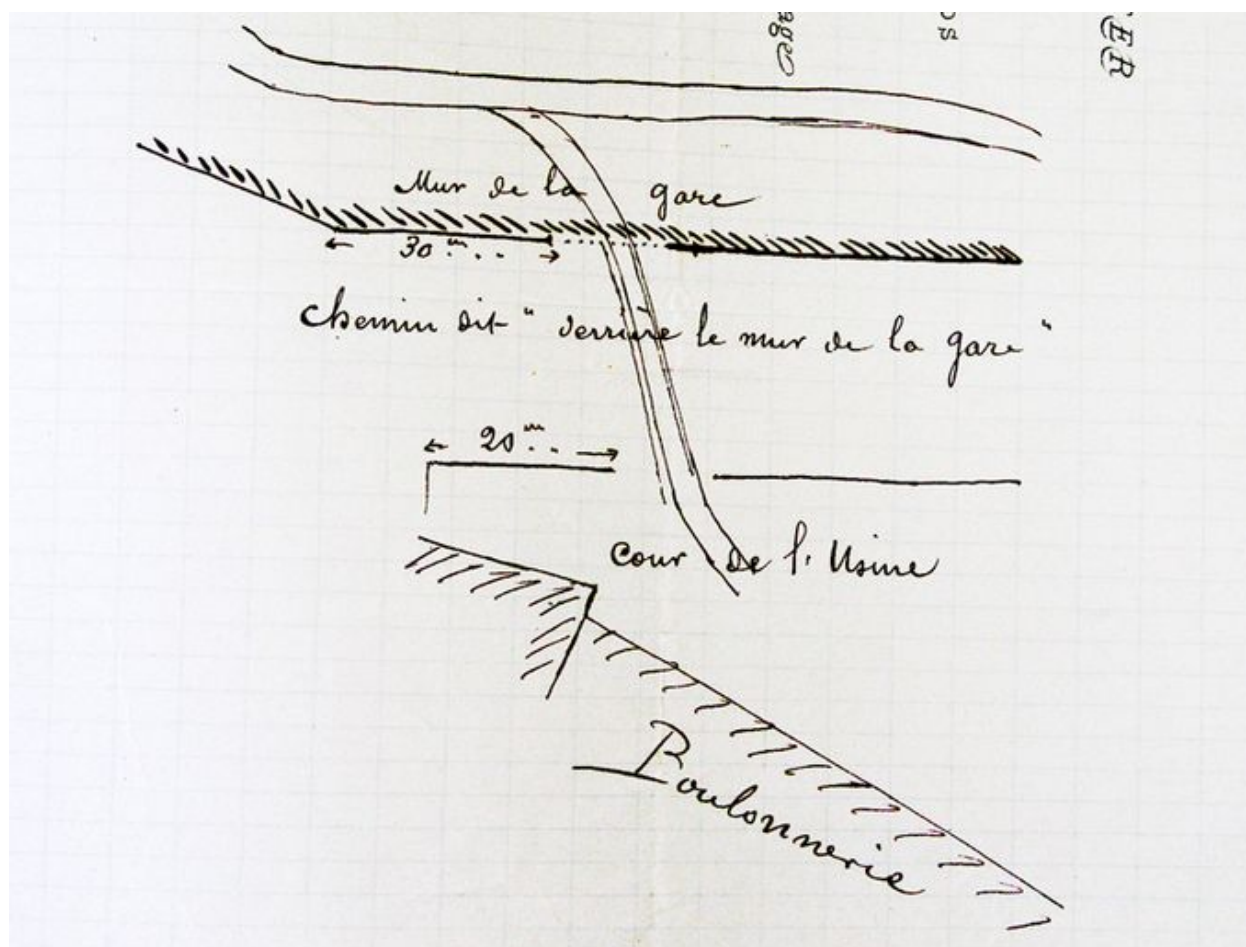 ER
os
age
Mur de la gare
30 m..
chemin dit "derrière le mur de la gare"
20 m..
Cour de l'Usine
Boulonnerie